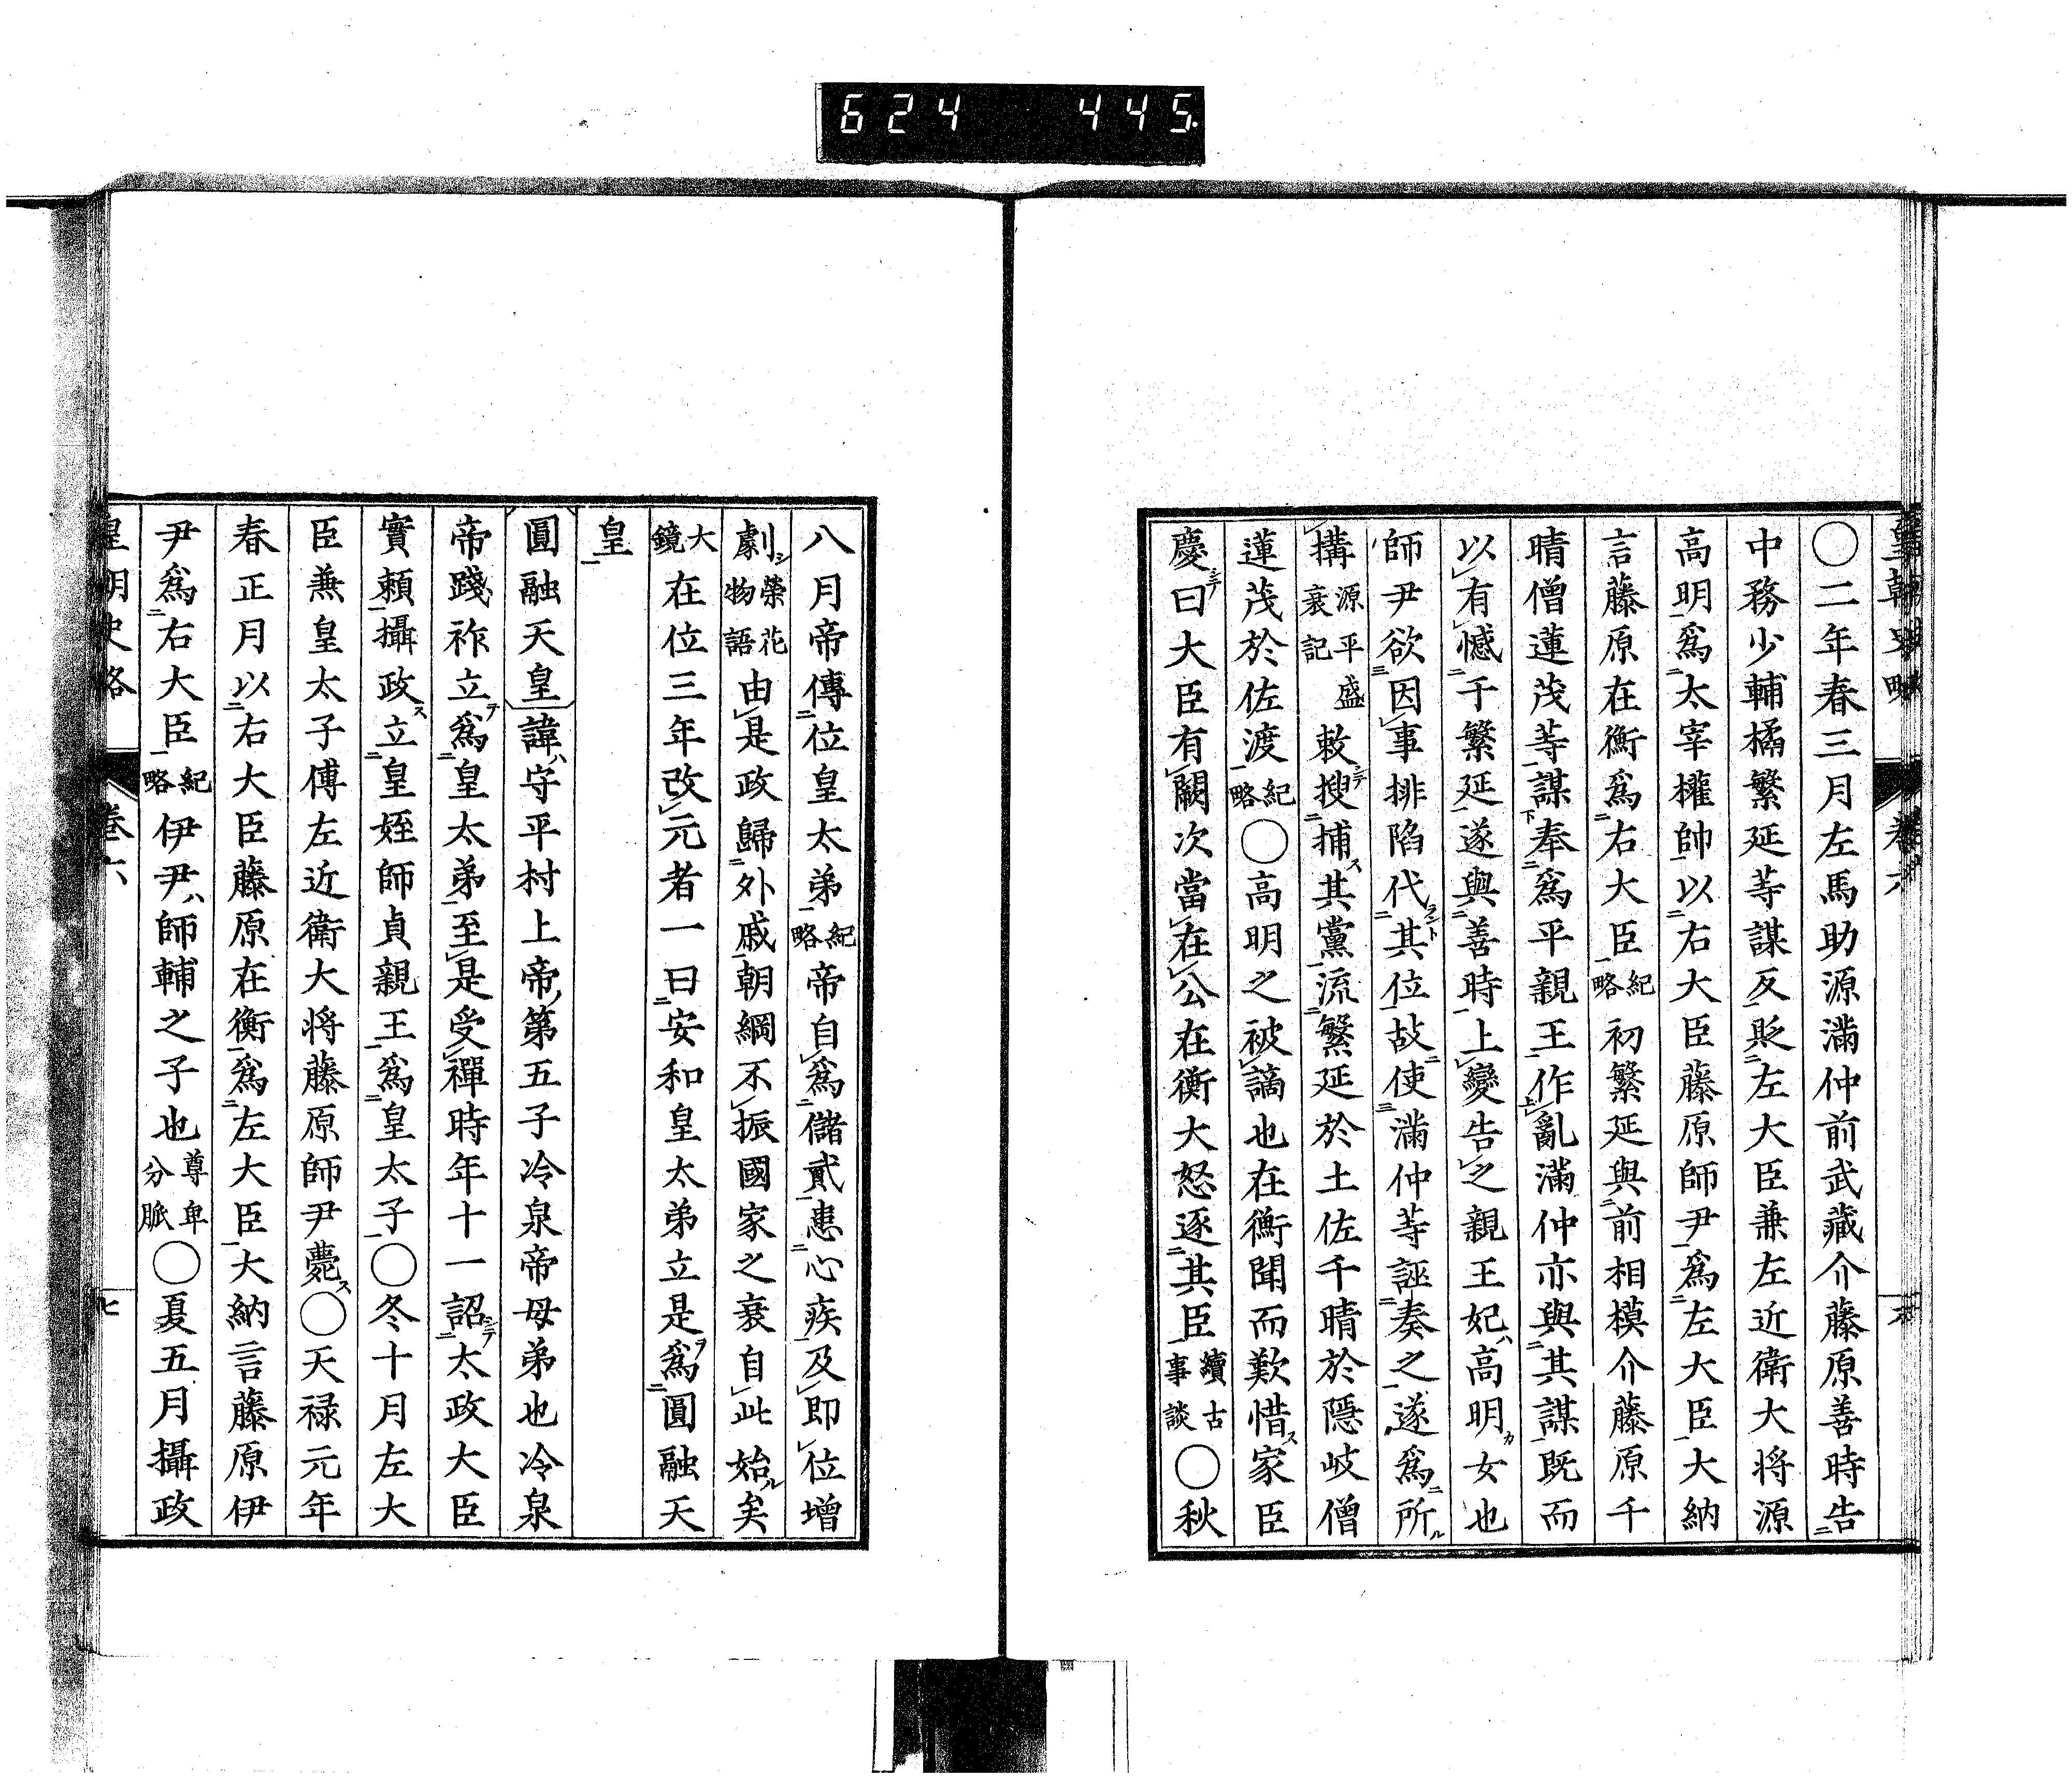 624 445
皇朝史略 卷六 六
○二年春三月左馬助源滿仲前武藏介藤原善時告
中務少輔橘繁延等謀反貶左大臣兼左近衛大將源
高明爲太宰權帥以右大臣藤原師尹爲左大臣大納
言藤原在衡爲右大臣紀略初繁延與前相模介藤原千
晴僧蓮茂等謀奉爲平親王作亂滿仲亦與其謀既而
以有憾于繁延遂與善時上變告之親王妃ハ高明カ女也
師尹欲因事排陷代其位故使滿仲等誣奏之遂爲所
搆源平盛衰記敕搜捕其黨流繁延於土佐千晴於隱岐僧
蓮茂於佐渡紀略○高明之被謫也在衡聞而歎惜ス家臣
慶曰大臣有闕次當在公在衡大怒逐其臣續古事談○秋
八月帝傳位皇太弟紀略帝自爲儲貳患心疾及即位增
劇榮花物語由是政歸外戚朝綱不振國家之衰自此始矣
大鏡在位三年改元者一曰安和皇太弟立是爲圓融天
皇
圓融天皇諱ハ守平村上帝ノ第五子冷泉帝母弟也冷泉
帝踐祚立テ爲皇太弟至是受禪時年十一詔太政大臣
實賴攝政ス立皇姪師貞親王爲皇太子○冬十月左大
臣兼皇太子傅左近衛大將藤原師尹薨ス○天祿元年
春正月以右大臣藤原在衡爲左大臣大納言藤原伊
尹爲右大臣紀略伊尹ハ師輔之子也尊卑分脈○夏五月攝政
皇朝史略 卷六 七